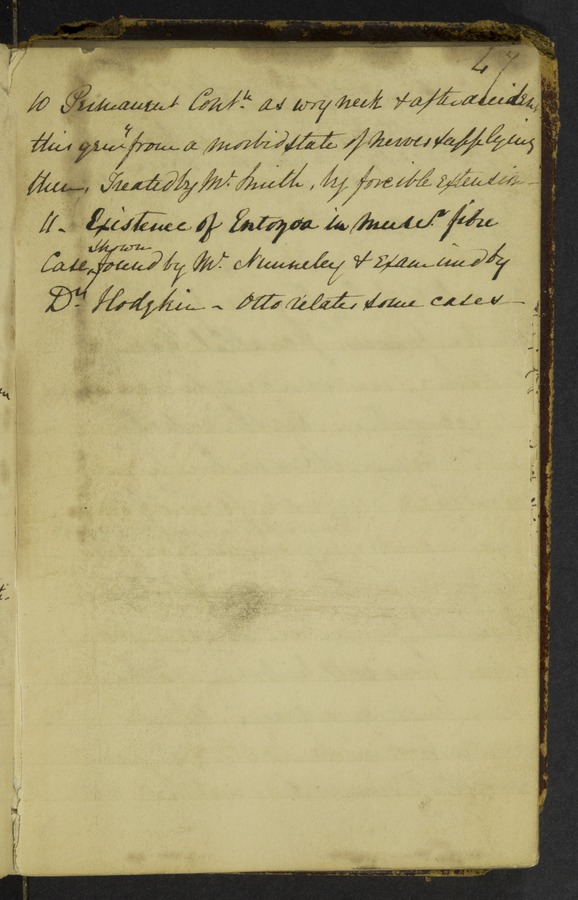 47
10 Permanent Contn as wry neck & after accidents
this genly from a morbid state of nerves supplying
them, Treated by Mr Smith, by forcible extension -
11 - Existence of Entozoa in Muscr fibre
shown
Case, found by Mr Nunneley & Examined by
Dr Hodgkin - Otto relates some cases -